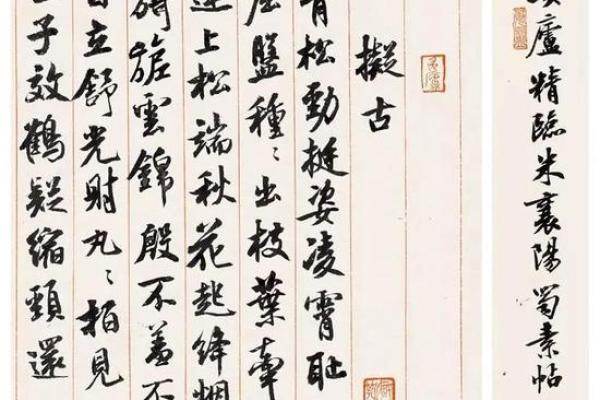 廬精臨米襄陽蜀素帖
擬古
青松勁挺姿凌霄恥
屈盤種〻出枝葉牽
連上松端秋花起絳烟
旖旎雲錦殷不羞不
自立舒光射丸〻柏見
子效鶴疑縮頸還